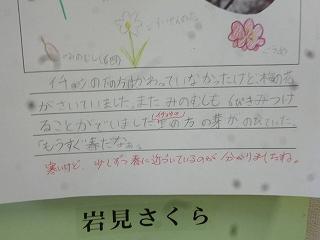 みのむし(6ぴき)
こうめ
イチョウの方はかわっていなかったけど、梅の花
がさいていました。またみのむしも6ぴきみつけ
ることができました。(イチョウ)の方の芽がのびていた。
「もうすぐ春だなぁ。
寒いけど、少しずつ春に近づいているのが分かりましたね。
岩見さくら